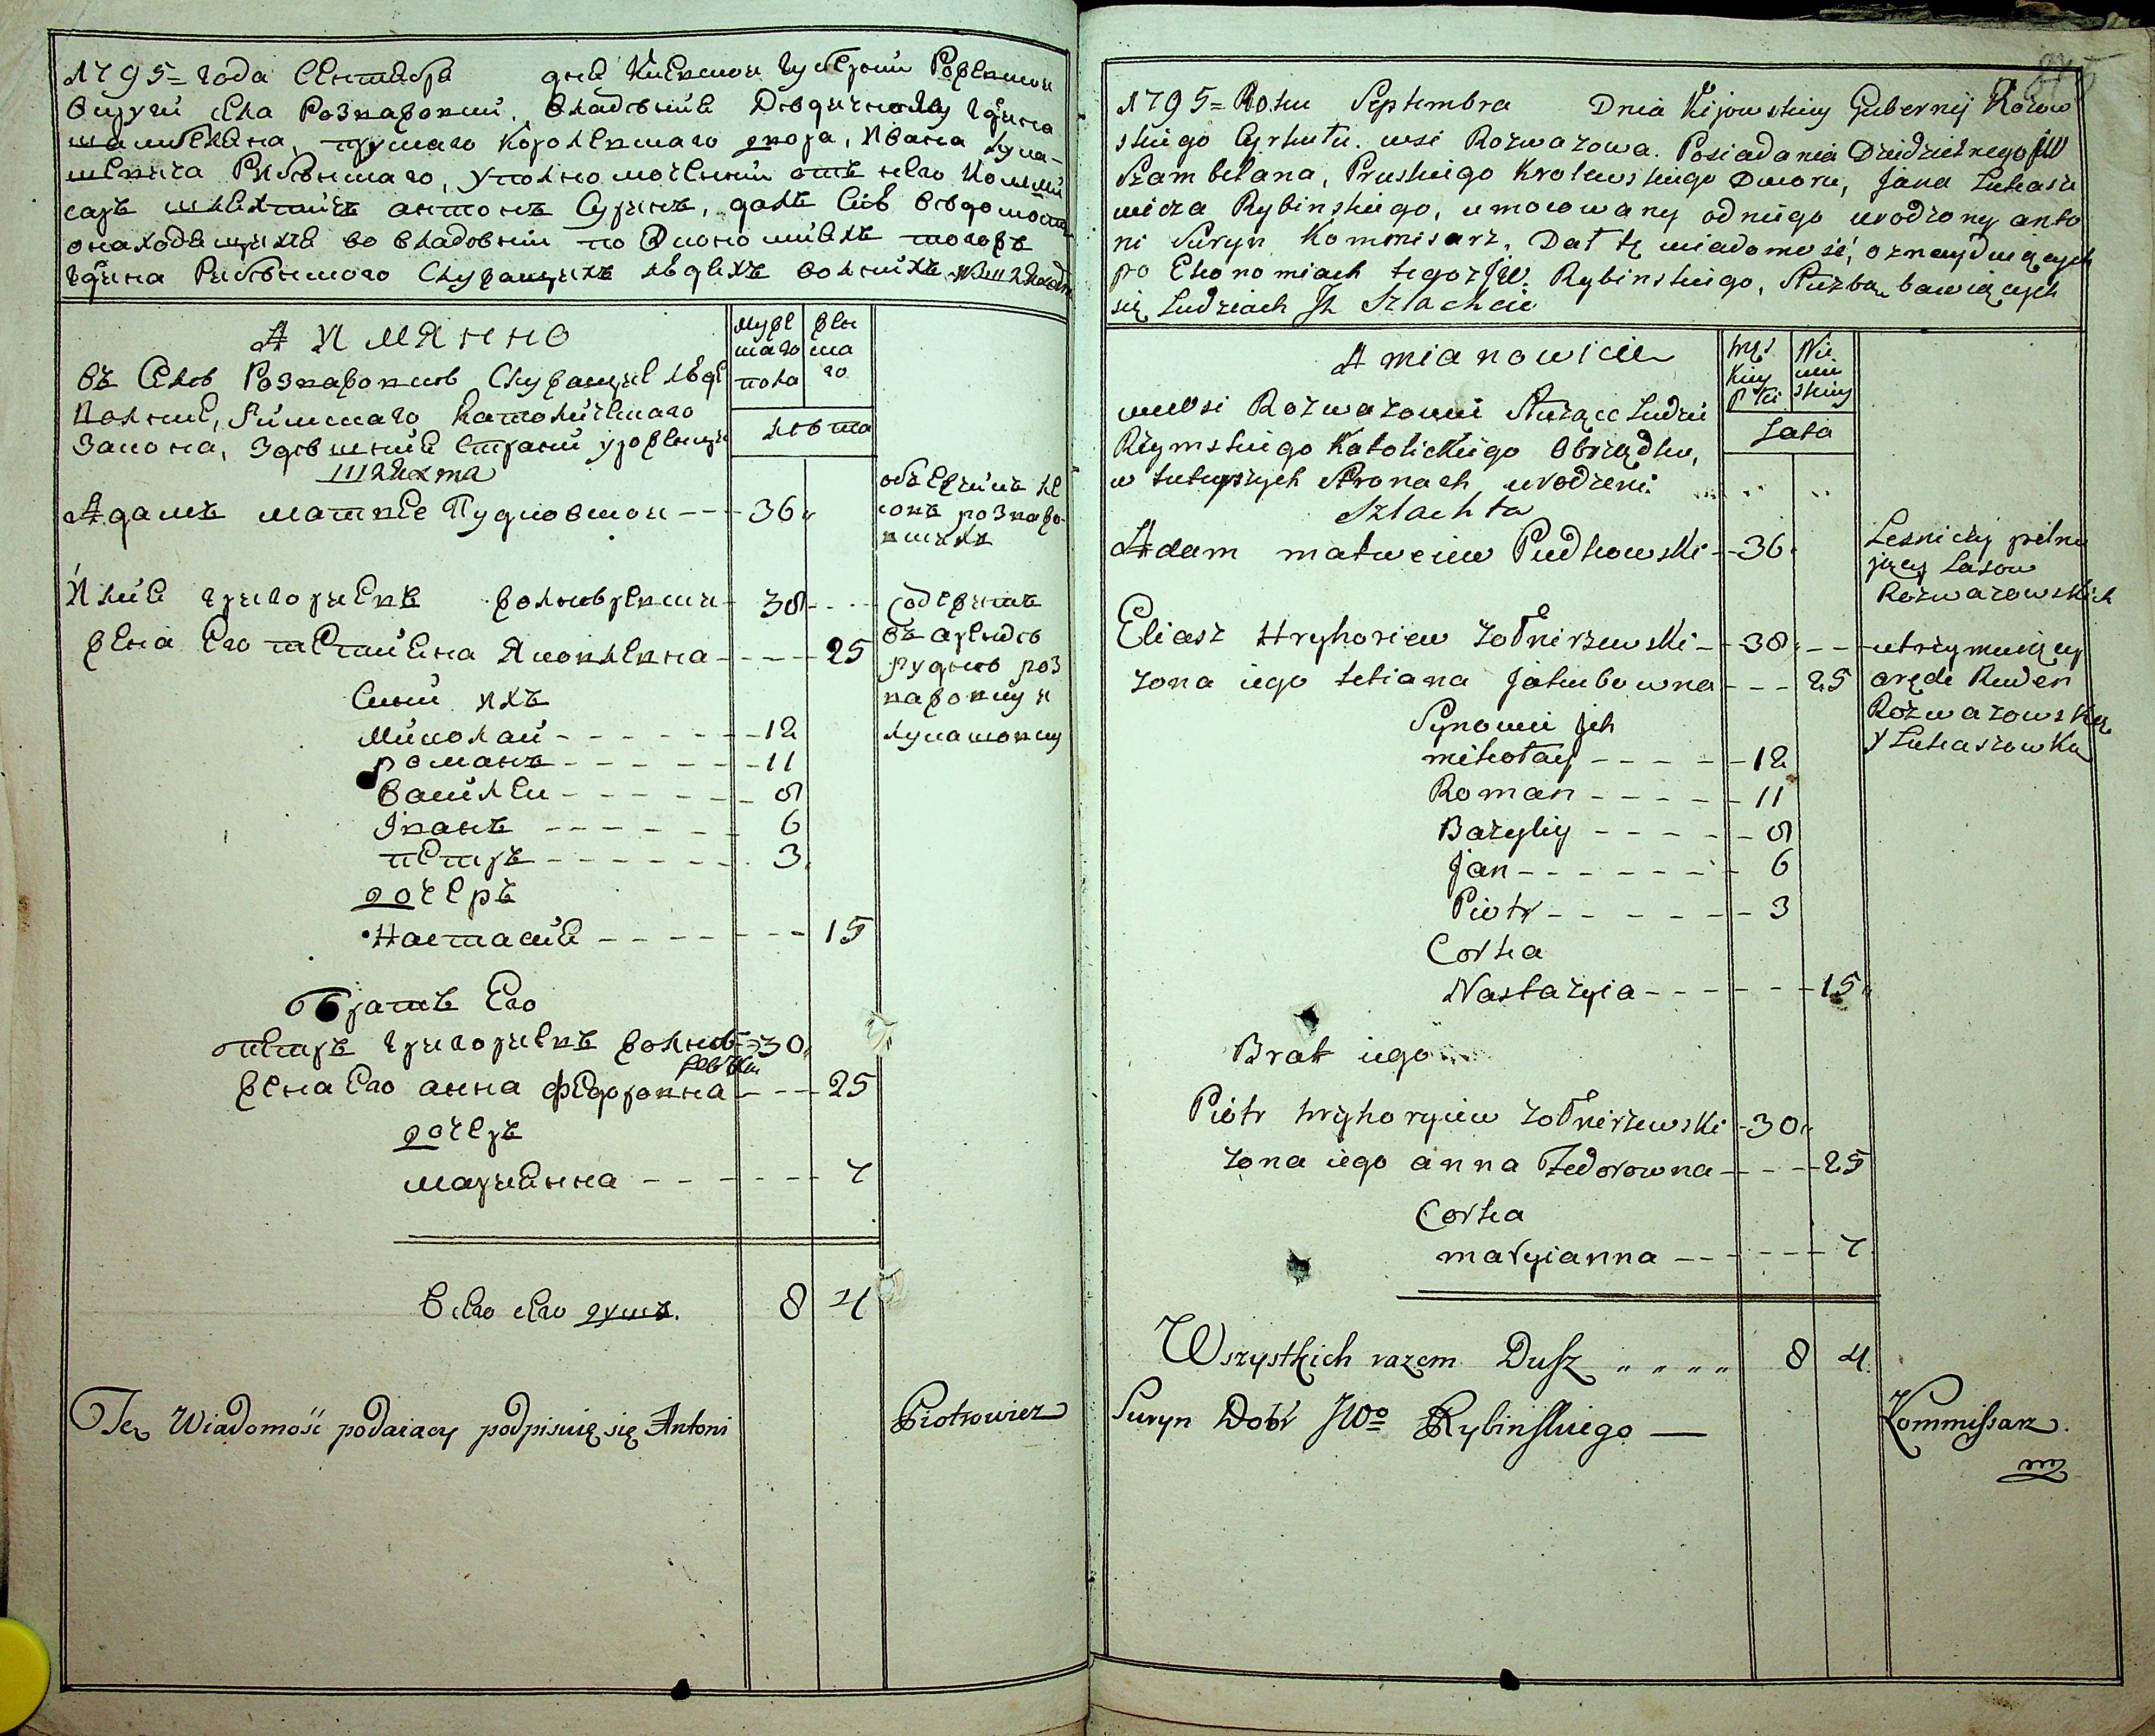 1795= года Сентября дня Киевской Губернии Радомской
Округи села Розважовки, владения Дедичного Ясне
шамбеляна, прускаго королевскаго двора, Ивана Лука-
шевича Рибинскаго, уполномоченный отъ него Коммис
саръ шляхтичъ антонъ Суринъ, далъ сию ведомость
о находящихся во владении по Экономияхъ тогожъ
Рибинскаго Служащихъ людяхъ волныхъ
А ИМЯННО
Въ Селе Розважовке Служащие люди
Полские, Римскаго Католическаго
Закона, здешней Страны уроженцы
Шляхта
мужескаго пола
женскаго
лета
Адамъ матвеев Пудковской --- 36
объездчикъ лесовъ розважовскихъ
Илия григориевъ жолнеревски- 38
жена Его тетияна Яковлевна ---- 25
Содержитъ въ аренде рудню розважовску и лукашовку
Сыни ихъ
Миколай ------- 12
романъ ------- 11
Василей ------- 9
Иванъ ------ 6
петръ ------- 3
дочеръ
Настасия ------- 15
Братъ Его
петръ григориевъ жолне- 30
ревски
жена Его анна федоровна --- 25
дочеръ
мариянна ------ 7
Всего сего душъ. 8 4
Tę Wiadomość podaiący podpisuię się Antoni Piotrowicz
1795= Roku Septembra Dnia Kijowskiey Gubernij
skiego Cyrkułu. wsi Rozwazowa. Posiadania Dziedzicznego JW
Szambelana, Pruskiego Krolewskiego Dworu, Jana Lukasze
wicza Rybinskiego, umocowany od niego urodzony anto
ni Suryn Kommisarz, Dał tę wiadomość, o znayduiących
po Ekonomiach tegoż JW. Rybinskiego, Służbą bawiących
się Ludziach Jch Szlachcie
A mianowicie
Męs
kiey
Płci
Nie
wie
skiey
Lata
we wsi Rozwazowie Służące Ludzie
Rzymskiego Katolickiego Obrządku,
w tuteyszych Stronach urodzeni
Szlachta
Adam matweiew Pudkowski -- 36
Lesniczy pilnu
jący Lasow
Rozwazowskich
Eliasz Hryhoriew zołnirzewski -- 38
zona iego tetiana Jakubowna --- 25
utrzymuiący
arędę Ruden
Rozwazowską
y Lukaszowką
Synowie Jch
mikołay ----- 12
Roman ----- 11
Bazyliy ----- 9
Jan ------- 6
Piotr ------ 3
Corka
Nastazyia ------ 15
Brat iego
Piotr hryhoryiew zołnirzewski - 30
zona iego anna Fedorowna ---- 25
Corka
maryianna ------ 7
Wszystkich razem Dusz 8 4
Suryn Dobr JWo Rybinskiego — Kommissarz.